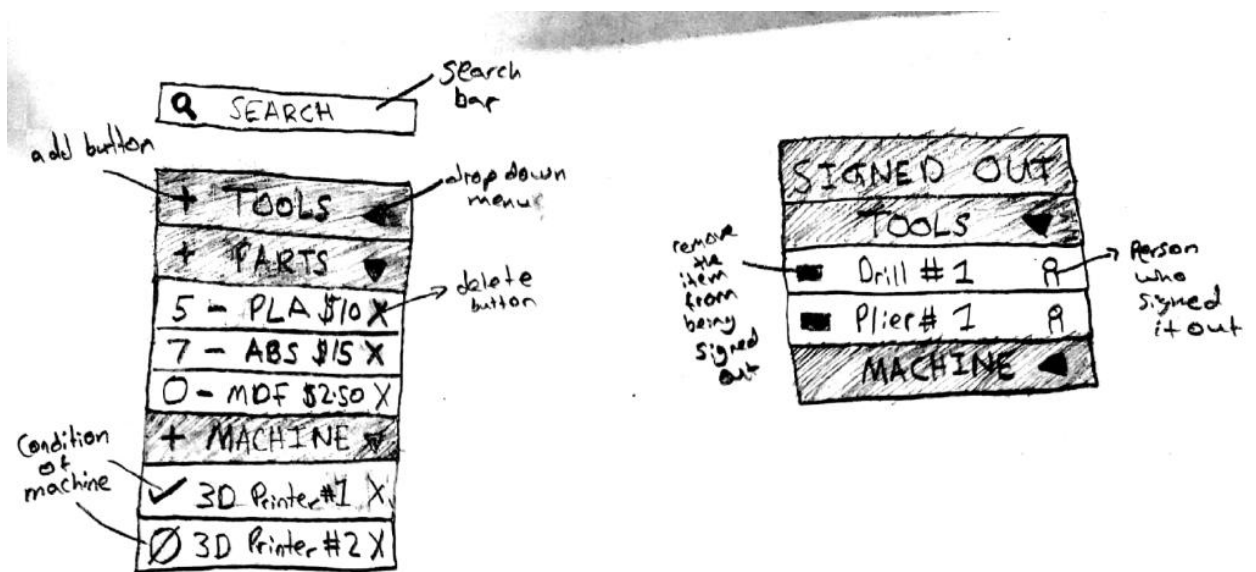 search
bar
SEARCH
add button
drop down
menu
+ TOOLS
+ PARTS
5 - PLA $10 X
delete
button
7 - ABS $15 X
0 - MDF $2.50 X
+ MACHINE
Condition
of
machine
3D Printer #1 X
3D Printer #2 X
SIGNED OUT
TOOLS
remove
the
item
from
being
signed
out
Drill # 1
Person
who
signed
it out
Plier # 1
MACHINE